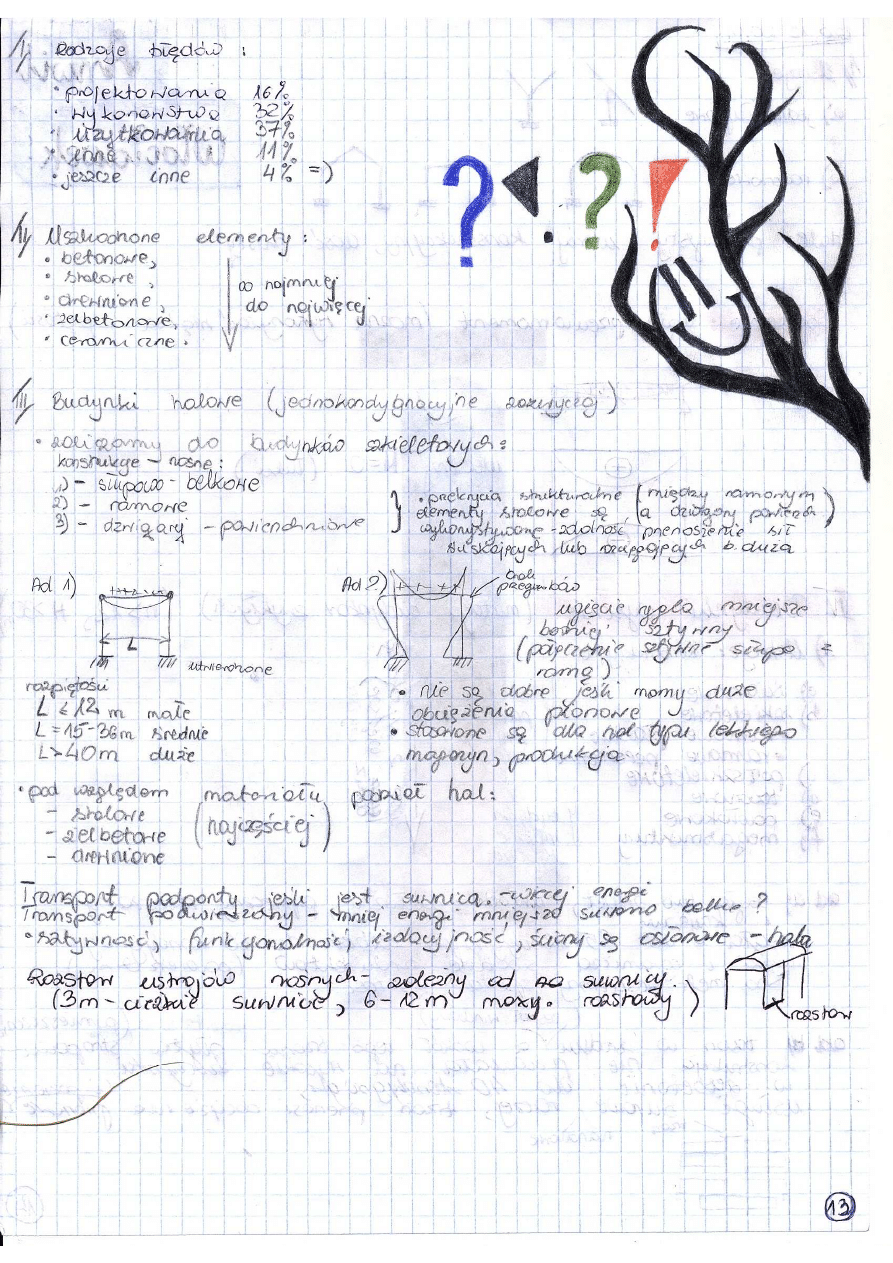 I/ Rodzaje błędów :
• projektowania 16%
• wykonawstwa 32%
• użytkowania 37%
• inna 11%
• jeszcze inne 4% =)
? . ? !
II/ Uszkodzone elementy :
• betonowe,
• stalowe,
• drewnione,
• żelbetonowe,
• ceramiczne.
od najmniej
do najwięcej
III/ Budynki halowe (jednokondygnacyjne zazwyczaj)
• zaliczamy do budynków szkieletowych:
konstrukcje - nośne:
1) - słupowo - belkowe
2) - ramowe
3) - dźwigary - powierzchniowe
} • przekrycia strukturalne (między ramowym
elementy stalowe są, a dźwigary powierzch)
wykorzystywane - zdolność przenoszenie sił
ściskających lub rozciągających b. duża
Ad 1)
L
utwierdzone
Ad 2)
brak
przegubów
ugięcie rygla mniejsze
bardziej sztywny
(połączenie sztywne słupa =
ramą)
rozpiętości
L ≤ 12 m małe
L = 15-36m średnie
L > 40m duże
• Nie są dobre jeśli mamy duże
obciążenia pionowe
• stosowane są dla hal typu lekkiego
magazyn, produkcja
• pod względem materiału podział hal:
- stalowe
- żelbetowe (najczęściej)
- drewnione
Transport podparty jeśli jest suwnica. - więcej energi
Transport podwieszany - mniej energi mniejsza suwnica belka ?
• sztywność, funkcjonalność, izolacyjność, ściany są osłonowe - hala
Rozstaw ustrojów nośnych - zależny od suwnicy.
(3m - ciężkie suwnice, 6-12m maxy. rozstawy)
rozstaw
13